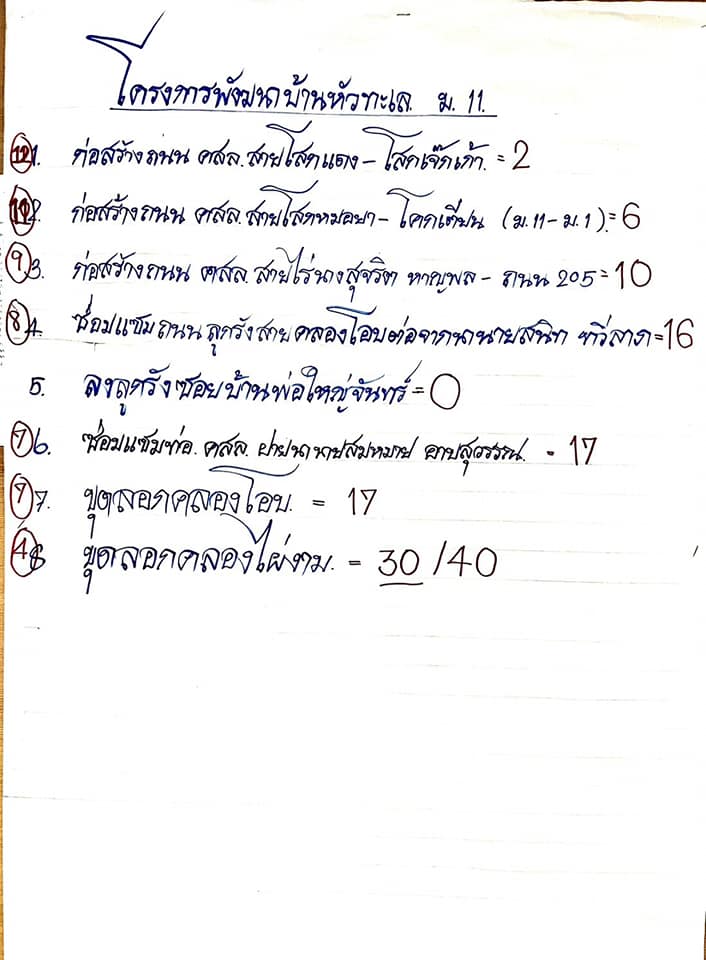 โครงการพัฒนาบ้านหัวทะเล ม. 11.
12 1. ก่อสร้างถนน คสล. สายโสกแดง - โสกเจ๊กเก้า. = 2
2. ก่อสร้างถนน คสล. สายโสกหมอยา - โคกเตียน (ม.11 - ม.1). = 6
9 3. ก่อสร้างถนน คสล. สายไร่นางสุจริต หาญพล - ถนน 205 = 10
8 4. ซ่อมแซมถนนลูกรังสายคลองโอบต่อจากนานายสนิท ทวีลาภ = 16
5. ลงลูกรังซอยบ้านพ่อใหญ่จันทร์ = 0
7 6. ซ่อมแซมท่อ. คสล. ฝายนานายสมหมาย อาบสุวรรณ. = 17
7 7. ขุดลอกคลองโอบ. = 17
4 8 ขุดลอกคลองไผ่งาม. = 30 /40